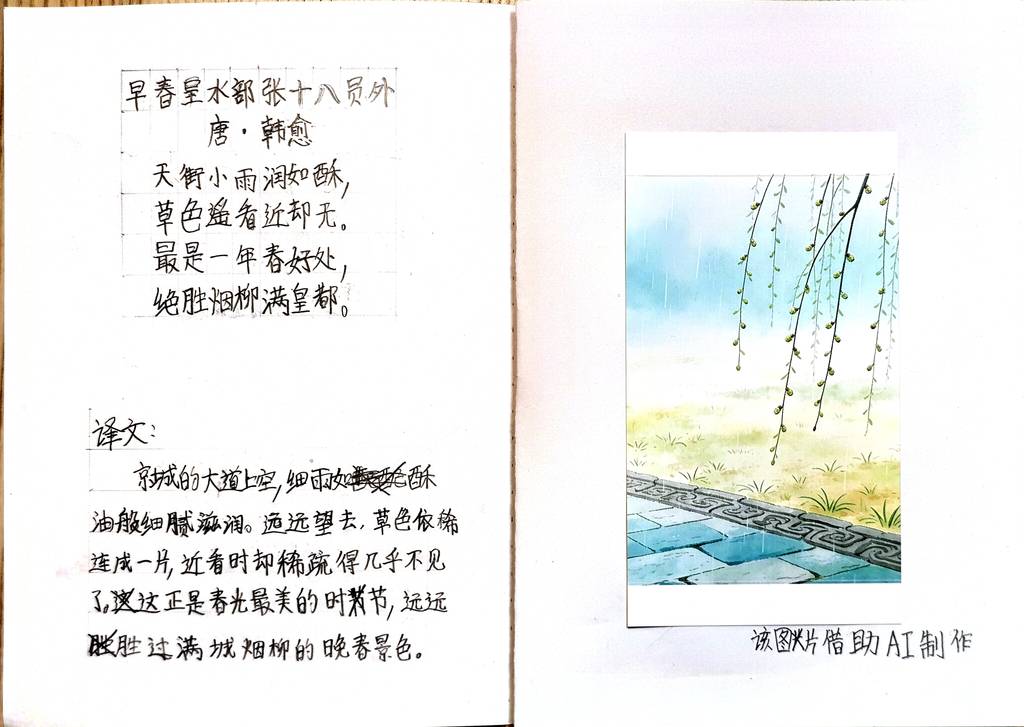 早春呈水部张十八员外
唐·韩愈
天街小雨润如酥,
草色遥看近却无。
最是一年春好处,
绝胜烟柳满皇都。
译文:
京城的大道上空,细雨如酥
油般细腻滋润。远远望去,草色依稀
连成一片,近看时却稀疏得几乎不见
了。这正是春光最美的时节,远远
胜过满城烟柳的晚春景色。
该图片借助AI制作